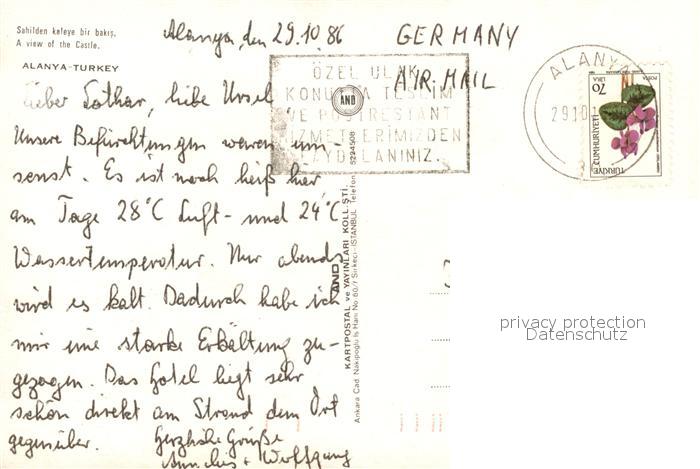 Sahilden kaleye bir bakış.
A view of the Castle.
ALANYA-TURKEY
Alanya, den 29.10.86
GERMANY
AIR MAIL
ÖZEL ULAK
KONUTTA TESLİM
VE POSTRESTANT
HİZMETLERİMİZDEN
FAYDALANINIZ.
ALANYA
29.10.1
70
LİRA
POSTA
TÜRKİYE CUMHURİYETİ
Lieber Lothar, liebe Ursel
Unsere Befürchtungen waren um-
senst. Es ist noch heiß hier,
am Tage 28°C Luft- und 24°C
Wassertemperatur. Nur abends
wird es kalt. Dadurch habe ich
mir eine starke Erkältung zu-
gezogen. Das Hotel liegt sehr
schön direkt am Strand dem Ort
gegenüber. Herzliche Grüße
Annelies + Wolfgang
AND
5224508
AND
KARTPOSTAL ve YAYINLARI KOLL. ŞTİ.
Ankara Cad. Nakipoğlu İş Hanı No. 60/7 Sirkeci-İSTANBUL Telefon
privacy protection
Datenschutz